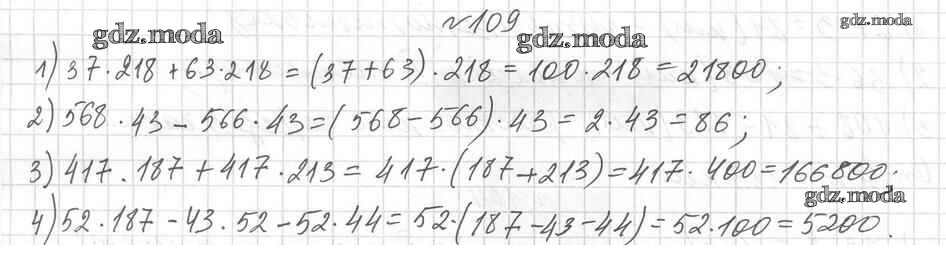 №109
gdz.moda
gdz.moda
gdz.moda
1) 37·218+63·218=(37+63)·218=100·218=21800;
2) 568·43-566·43=(568-566)·43=2·43=86;
3) 417·187+417·213=417·(187+213)=417·400=166800.
gdz.moda
4) 52·187-43·52-52·44=52·(187-43-44)=52·100=5200.